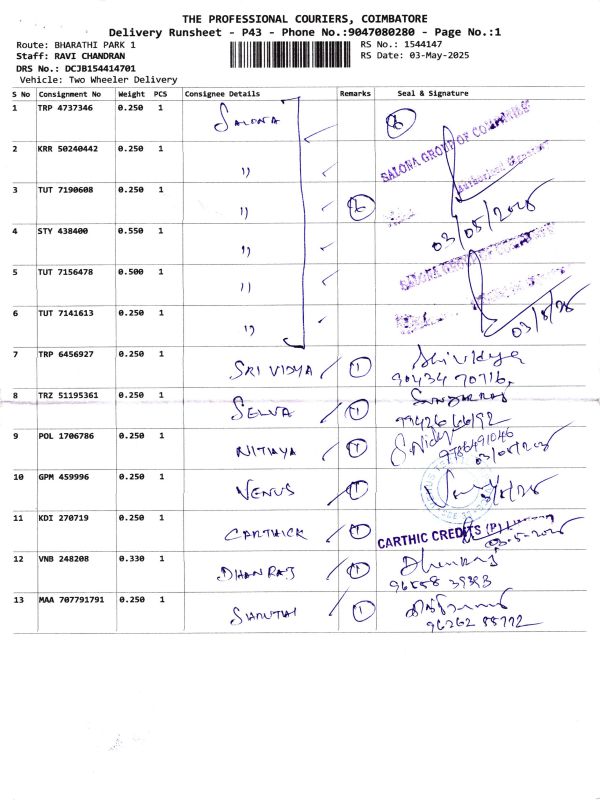 THE PROFESSIONAL COURIERS, COIMBATORE
Delivery Runsheet - P43 - Phone No.:9047080280 - Page No.:1
Route: BHARATHI PARK 1 RS No.: 1544147
Staff: RAVI CHANDRAN RS Date: 03-May-2025
DRS No.: DCJB154414701
Vehicle: Two Wheeler Delivery
S No Consignment No Weight PCS Consignee Details Remarks Seal & Signature
1 TRP 4737346 0.250 1 SALONA 6 SALONA GROUP OF COMPANIES
2 KRR 50240442 0.250 1 " Authorised Signatory
3 TUT 7190608 0.250 1 " 6 03/05/2025
4 STY 438400 0.550 1 " SALONA GROUP OF COMPANIES
5 TUT 7156478 0.500 1 "
6 TUT 7141613 0.250 1 " 03/5/25
7 TRP 6456927 0.250 1 SRI VIDYA 1 Shrividya
90434 70716,
8 TRZ 51195361 0.250 1 SELVA 1
99426 66192
9 POL 1706786 0.250 1 NITHYA 1 S.Nithy
9786491046
03/05/2025
10 GPM 459996 0.250 1 VENUS 1
11 KDI 270719 0.250 1 CARTHICK 1 CARTHIC CREDITS (P)
03-5-2025
12 VNB 248208 0.330 1 DHANRAJ 1 Dhanraj
96558 39393
13 MAA 707791791 0.250 1 SHRUTHI 1
96262 88772